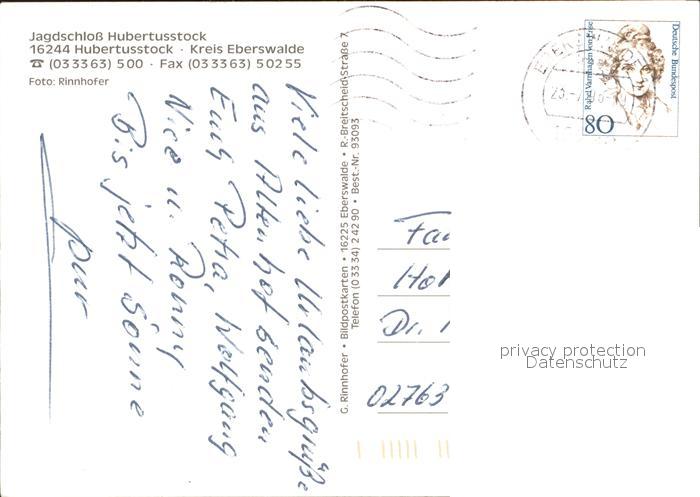 Jagdschloß Hubertusstock
16244 Hubertusstock · Kreis Eberswalde
☎ (03 33 63) 5 00 · Fax (03 33 63) 5 02 55
Foto: Rinnhofer
Viele liebe Urlaubsgrüße
aus Altenhof senden
Euch Petra, Wolfgang
Nico u. Ronny
Bis jetzt Sonne
pur
G. Rinnhofer • Bildpostkarten • 16225 Eberswalde • R.-Breitscheid-Straße 7
Telefon (0 33 34) 2 42 90 • Best.-Nr. 93093
Rahel Varnhagen von Ense
Deutsche Bundespost
80
Fa
Ho
Dr.
02763
privacy protection
Datenschutz